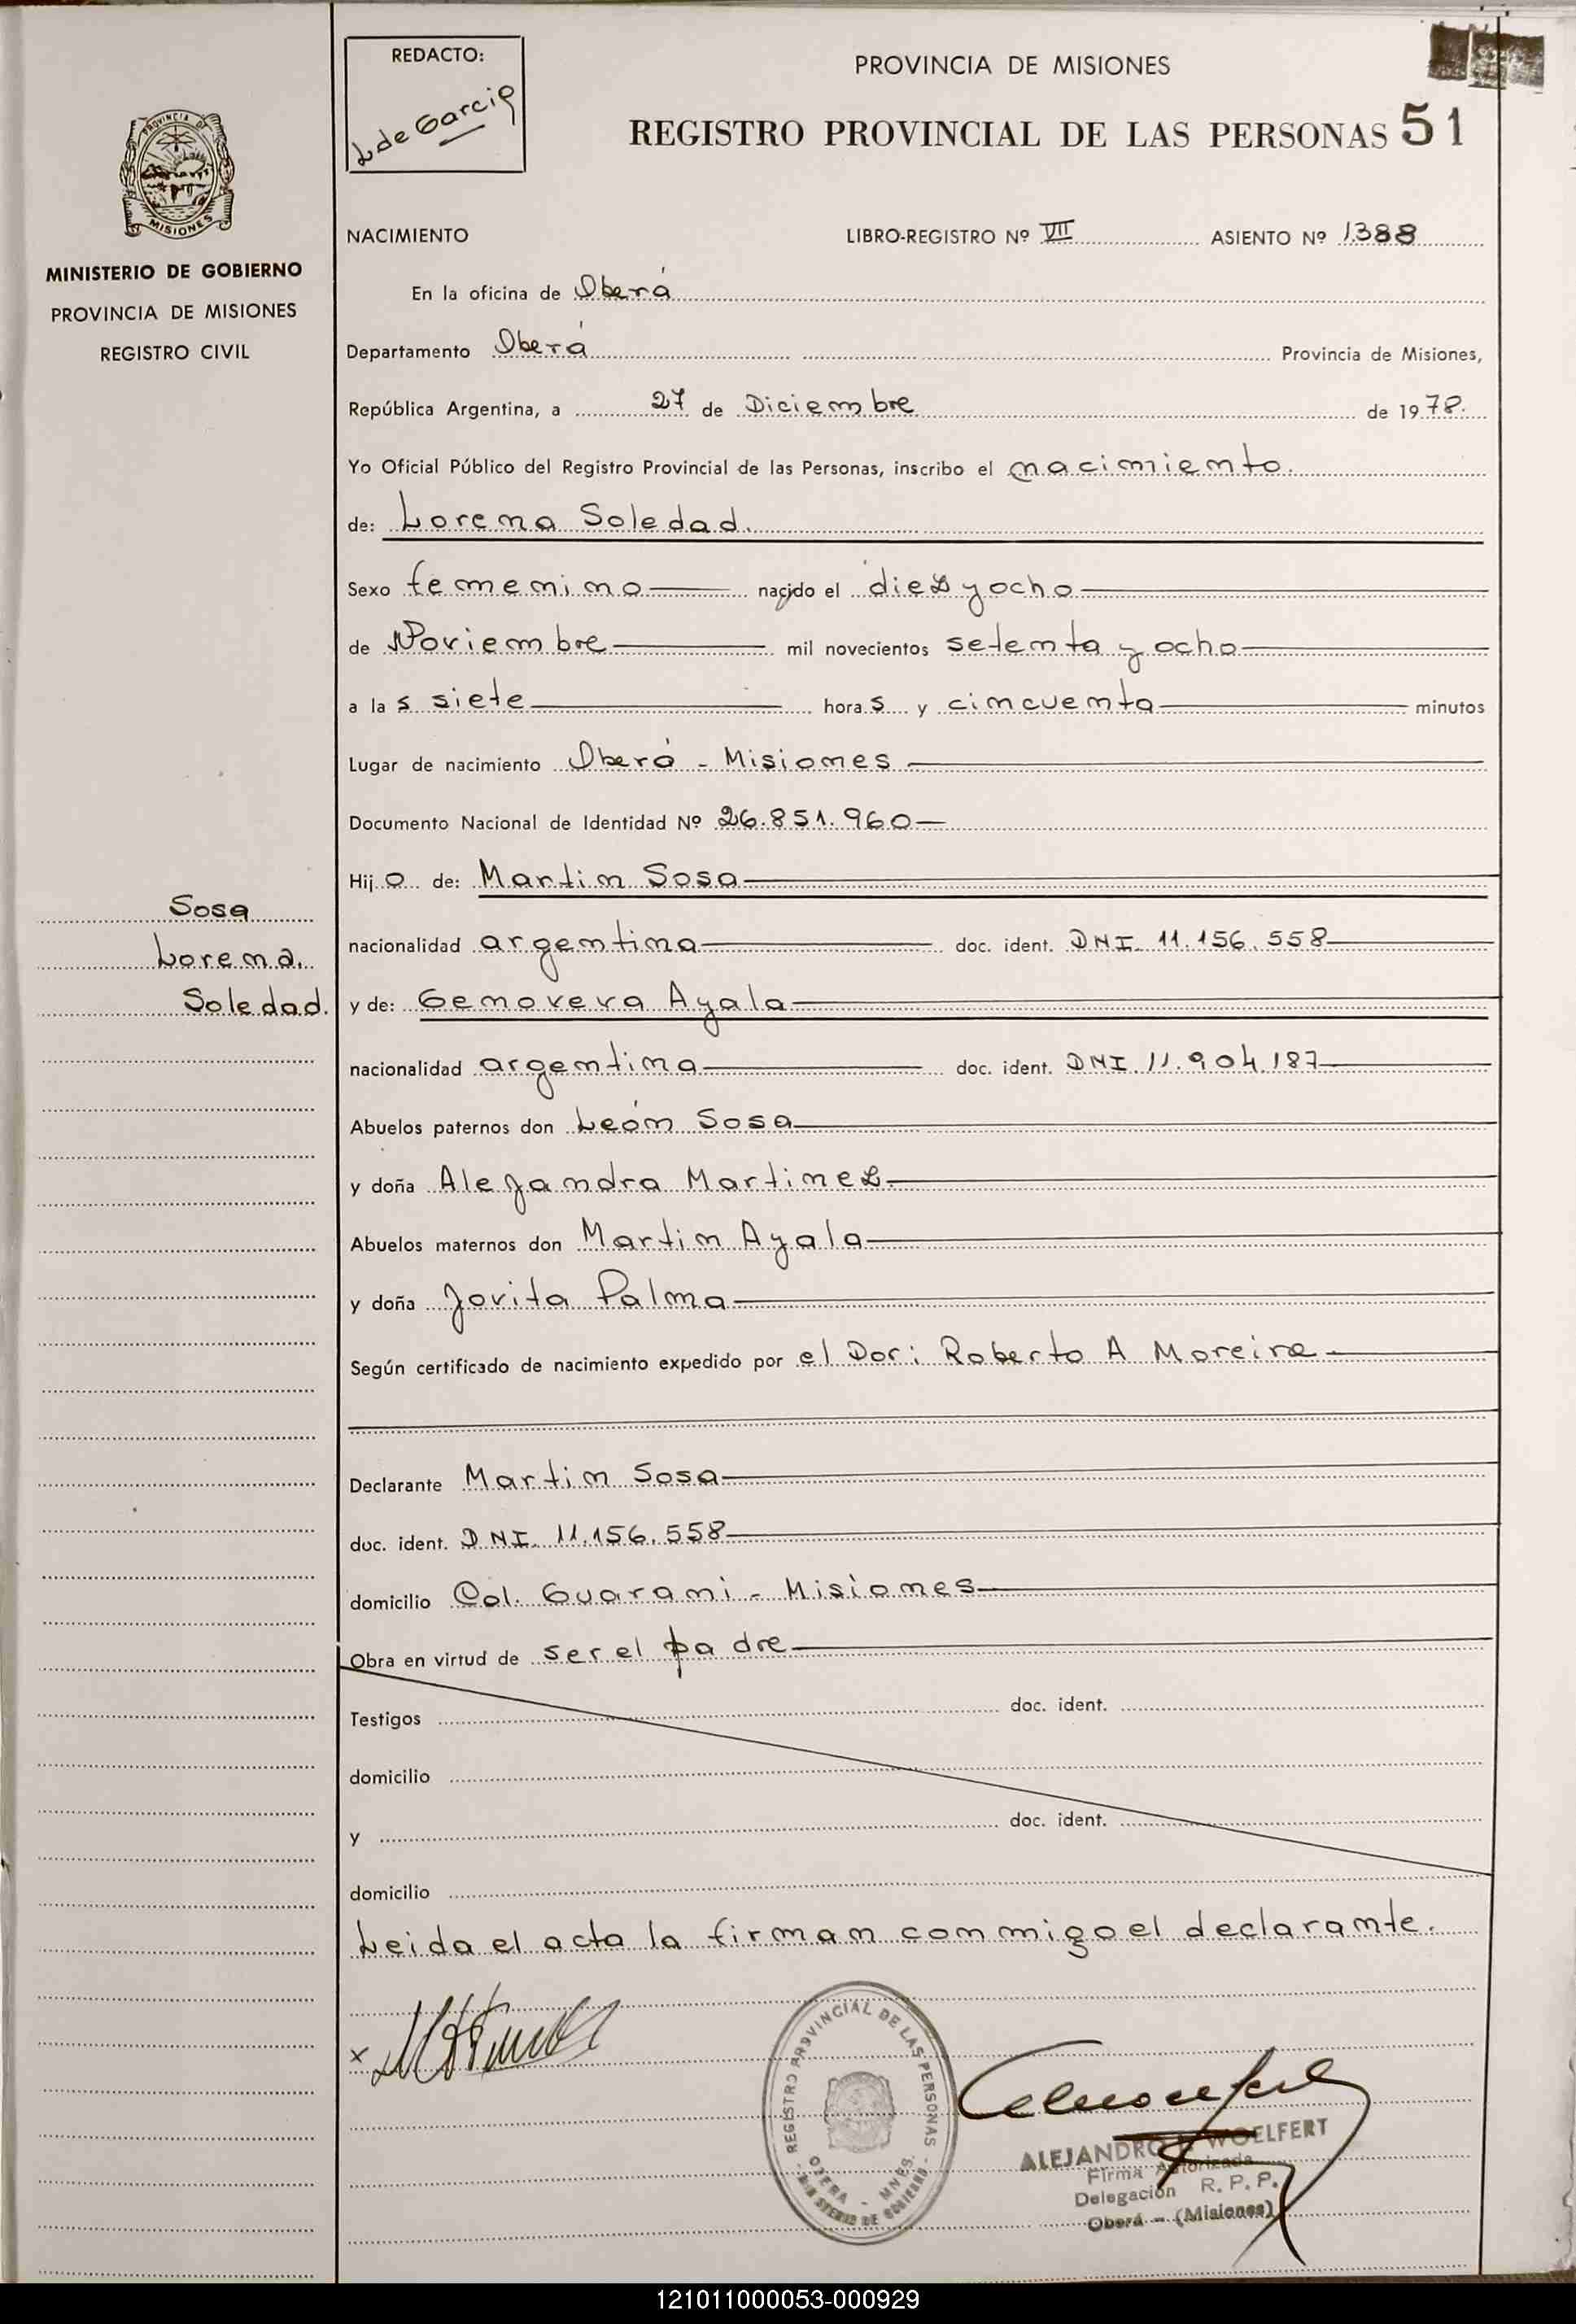 REDACTO:
L de Garcia
PROVINCIA DE MISIONES
REGISTRO PROVINCIAL DE LAS PERSONAS 51
PROVINCIA DE
MISIONES
MINISTERIO DE GOBIERNO
PROVINCIA DE MISIONES
REGISTRO CIVIL
NACIMIENTO LIBRO-REGISTRO Nº VII ASIENTO Nº 1388
En la oficina de Oberá
Departamento Oberá Provincia de Misiones,
República Argentina, a 27 de Diciembre de 1978.
Yo Oficial Público del Registro Provincial de las Personas, inscribo el nacimiento.
de: Lorena Soledad.
Sexo femenino nacido el diez y ocho
de Noviembre mil novecientos setenta y ocho
a las siete horas y cincuenta minutos
Lugar de nacimiento Oberá - Misiones
Documento Nacional de Identidad Nº 26.851.960
Hijo de: Martin Sosa
Sosa
Lorena.
Soledad.
nacionalidad argentina doc. ident. DNI. 11.156.558
y de: Genoveva Ayala
nacionalidad argentina doc. ident. DNI. 11.904.187
Abuelos paternos don León Sosa
y doña Alejandra Martinez
Abuelos maternos don Martin Ayala
y doña Jovita Palma
Según certificado de nacimiento expedido por el Dor: Roberto A Moreira
Declarante Martin Sosa
doc. ident. DNI. 11.156.558
domicilio Col. Guarani - Misiones
Obra en virtud de ser el padre
Testigos doc. ident.
domicilio
y doc. ident.
domicilio
Leida el acta la firman conmigo el declarante.
x
REGISTRO PROVINCIAL DE LAS PERSONAS
OBERA - MNES.
- MINISTERIO DE GOBIERNO -
ALEJANDRO WOELFERT
Firma Autorizada
Delegación R. P. P.
Oberá - (Misiones)
121011000053-000929